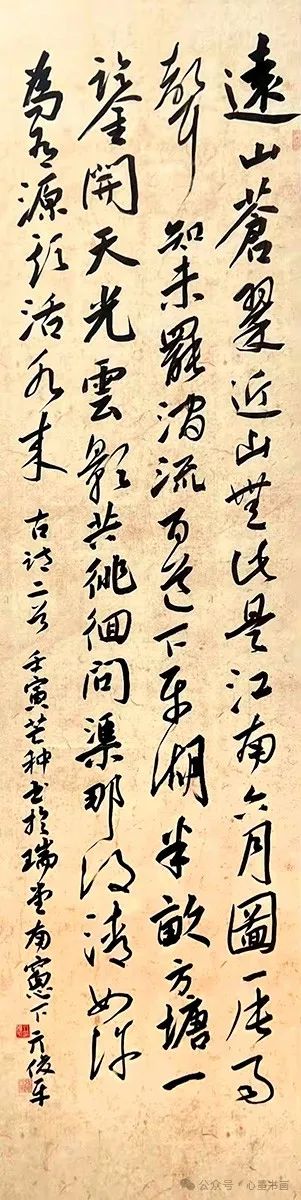 遠山蒼翠近山無此是江南六月圖一陣雨
聲知未罷澗流百道下平湖半畝方塘一
鑒開天光雲影共徘徊問渠那得清如許
為有源頭活水來 古詩二首 壬寅芒种书於瑞堂南窗下 亓俊平
公众号 · 心墨书画